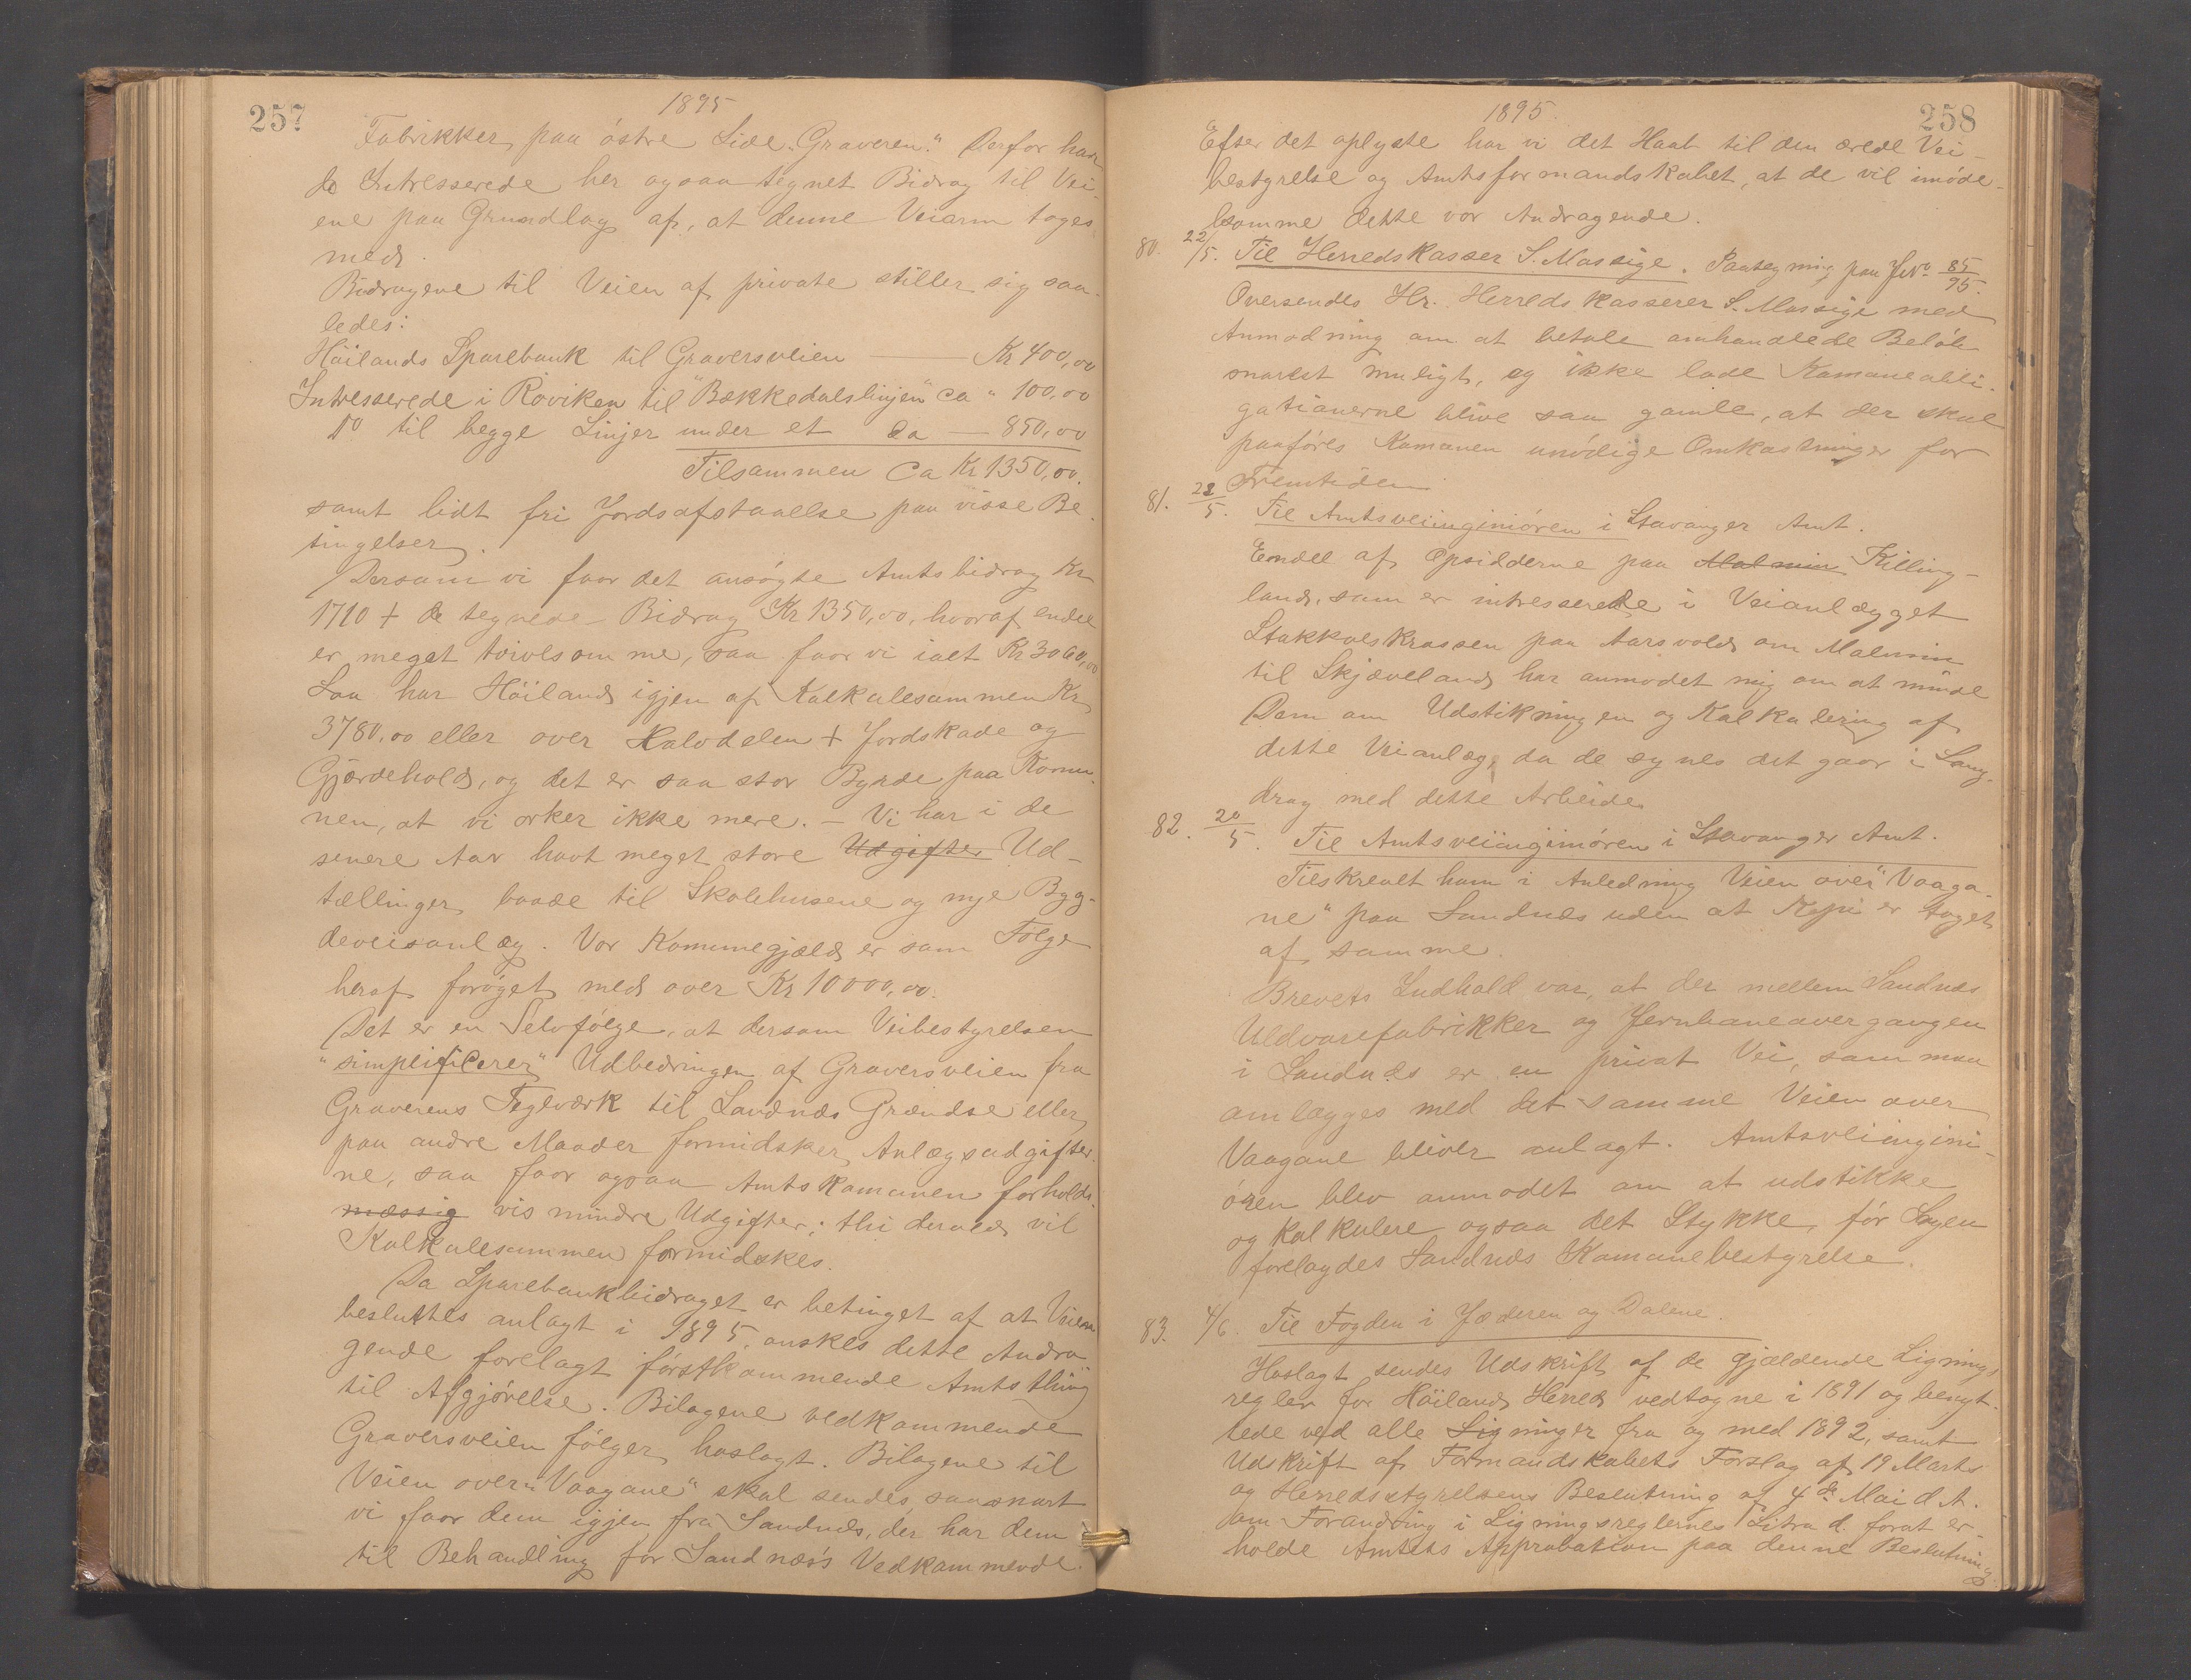 257
1895
Fabrikker paa östre Side "Graveren." Derfor har
de Intresserede her ogsaa tegnet Bidrag til Vei-
ene paa Grundlag af, at denne Veiarm toges
med.
Bidragene til Veien af private stiller sig saa-
ledes:
Höilands Sparebank til Graversveien — Kr 400,00
Intresserede i Roviken til "Bækkedalslinjen" ca " 100,00
Do til begge Linjer under et ca — 850,00
Tilsammen Ca Kr 1350,00.
samt lidt fri Jordsafstaaelse paa visse Be-
tingelser.
Dersom vi faar det ansögte Amtsbidrag Kr
1710 + de tegnede Bidrag Kr 1350,00, hvoraf endel
er meget tvivlsomme, saa faar vi ialt Kr 3060,00
Saa har Höiland igjen af Kalkulesummen Kr
3780,00 eller over Halvdelen + Jordskade og
Gjærdehold, og det er saa stor Byrde paa Komu-
nen, at vi orker ikke mere. — Vi har i de
senere Aar havt meget store Udgifter Ud-
tællinger baade til Skolehusene og nye Byg-
deveisanlæg. Vor Kommunegjæld er som Følge
heraf forøget med over Kr 10000,00.
Det er en Selvfölge, at dersom Veibestyrelsen
"simplificerer" Udbedringen af Graversveien fra
Graverens Teglværk til Sandnæs Grændse eller
paa andre Maader formidsker Anlægsudgifter-
ne, saa faar ogsaa Amtskomunen forholds-
mæssig vis mindre Udgifter; thi derved vil
Kalkulesummen formidskes.
Da Sparebankbidraget er betinget af at Veien
besluttes anlagt i 1895, ønskes dette Andra-
gende forelagt förstkommende Amtsthing
til Afgjörelse. Bilagene vedkommende
Graversveien fölger hoslagt. Bilagene til
Veien over "Vaagane" skal sendes, saasnart
vi faar dem igjen fra Sandnes, der har dem
til Behandling for Sandnæs's Vedkommende.
258
1895.
Efter det oplyste har vi det Haab til den ærede Vei-
bestyrelse og Amtsformandskabet, at de vil imöde-
komme dette vor Andragende.
80. 22/5. Til Herredskasser S. Massige. Paategning paa JNo 85/95.
Oversendes Hr. Herredskasserer S. Massige med
Anmodning om at betale omhandlede Beløb
snarest muligt, og ikke lade Komuneobli-
gationerne blive saa gamle, at der skal
paaføres Komunen unödige Omkostninger for
Fremtiden.
81. 22/5. Til Amtsveiinginiören i Stavanger Amt.
Endel af Opsidderne paa Malmin Killing-
land, som er intresserede i Veianlægget
Stokkalskrossen paa Aarsvold om Malmin
til Skjæveland har anmodet mig om at minde
Dem om Udstikningen og Kalkulering af
dette Veianlæg, da de synes det gaar i Lang-
drag med dette Arbeide.
82. 20/5. Til Amtsveiinginiören i Stavanger Amt.
Tilskrevet ham i Anledning Veien over "Vaaga-
ne" paa Sandnæs uden at Kopi er taget
af samme.
Brevets Indhold var, at der mellem Sandnæs
Uldvarefabrikker og Jernbaneovergangen
i Sandnæs er en privat Vei, som maa
omlægges med det samme Veien over
Vaagane bliver anlagt. Amtsveiingini-
ören blev anmodet om at udstikke
og kalkulere ogsaa det Stykke, för Sagen
forelagdes Sandnæs Komunebestyrelse.
83. 4/6. Til Fogden i Jæderen og Dalene.
Hoslagt sendes Udskrift af de gjældende Lignings-
regler for Höilands Herred vedtagne i 1891 og benyt-
tede ved alle Ligninger fra og med 1892, samt
Udskrift af Formandskabets Forslag af 19 Marts
og Herredsstyrelsens Beslutning af 4de Mai d. A.
om Forandring i Ligningsreglernes Litra d. forat er-
holde Amtets Approbation paa denne Beslutning.